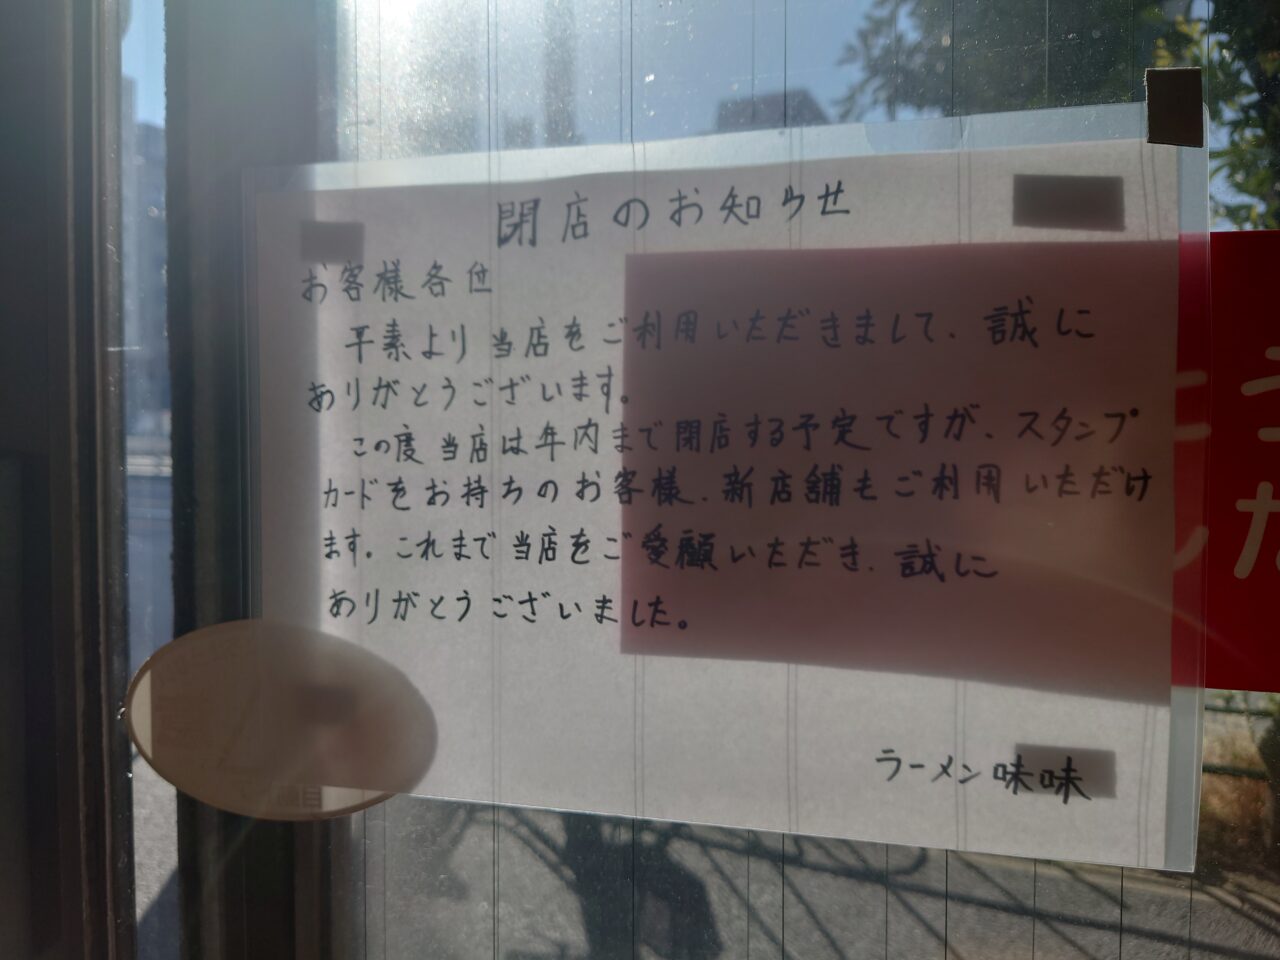 閉店のお知らせ
お客様各位
平素より当店をご利用いただきまして、誠に
ありがとうございます。
この度当店は年内まで閉店する予定ですが、スタンプ
カードをお持ちのお客様、新店舗もご利用いただけ
ます。これまで当店をご愛顧いただき、誠に
ありがとうございました。
ラーメン味味